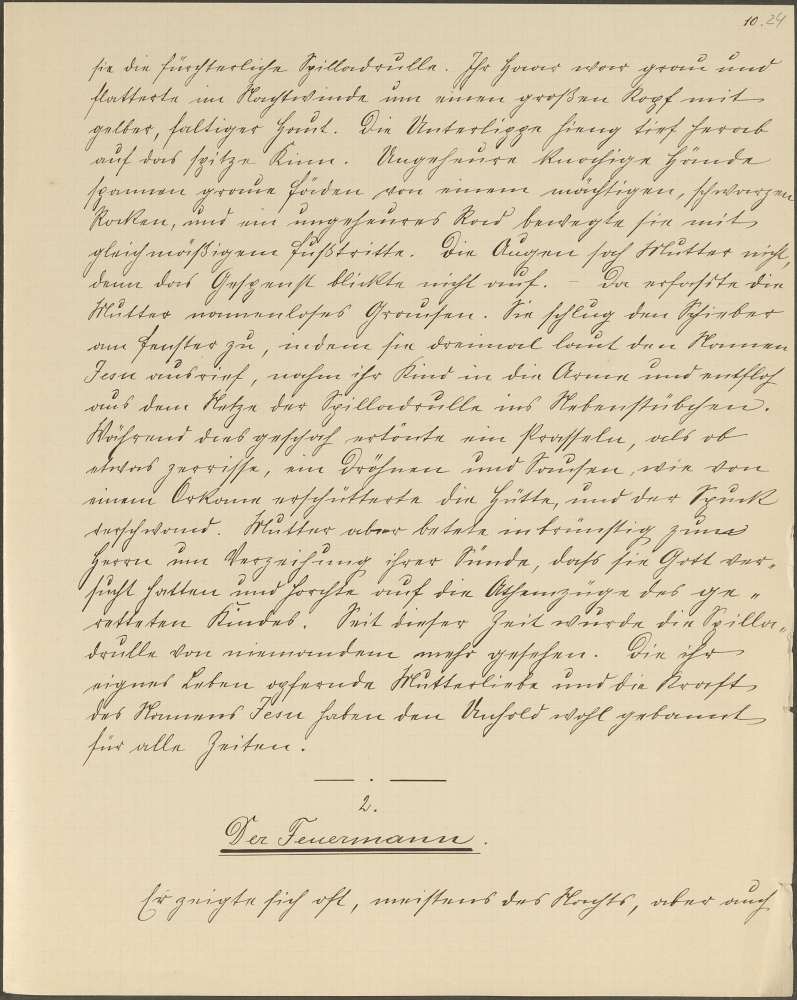 10. 24
sie die fürchterliche Spilladrulle. Ihr Haar war grau und
flatterte im Nachtwinde um einen großen Kopf mit
gelber, faltiger Haut. Die Unterlippe hieng tief herab
auf das spitze Kinn. Ungeheure knochige Hände
spannen graue Fäden von einem mächtigen, schwarzen
Rocken, und ein ungeheures Rad bewegte sie mit
gleichmäßigem Fußtritte. Die Augen sah Mutter nicht,
denn das Gespenst blickte nicht auf. – Da erfasste die
Mutter namenloses Grausen. Sie schlug den Schieber
am Fenster zu, indem sie dreimal laut den Namen
Jesu ausrief, nahm ihr Kind in die Arme und entfloh
aus dem Netze der Spilladrulle ins Nebenstübchen.
Während dies geschah ertönte ein Prasseln, als ob
etwas zerrisse, ein Dröhnen und Sausen, wie von
einem Orkane erschütterte die Hütte, und der Spuck
verschwand. Mutter aber betete inbrünstig zum
Herrn um Verzeihung ihrer Sünde, dass sie Gott ver„
sucht hatten und horchte auf die Athemzüge des ge„
retteten Kindes. Seit dieser Zeit wurde die Spilla„
drulle von niemandem mehr gesehen. Die ihr
eignes Leben opfernde Mutterliebe und die Kraft
des Namens Jesu haben den Unhold wohl gebannt
für alle Zeiten.
2.
Der Feuermann.
Er zeigte sich oft, meistens des Nachts, aber auch